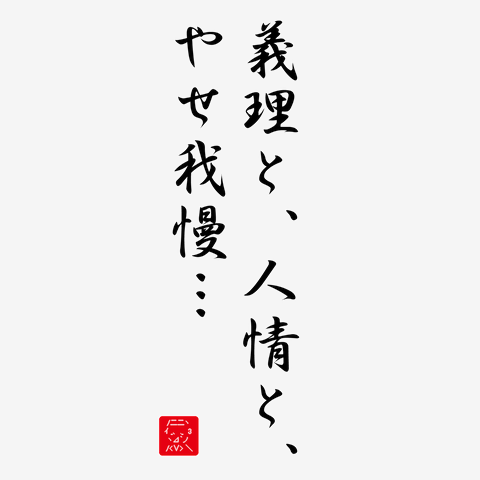 義理と、人情と、
やせ我慢…